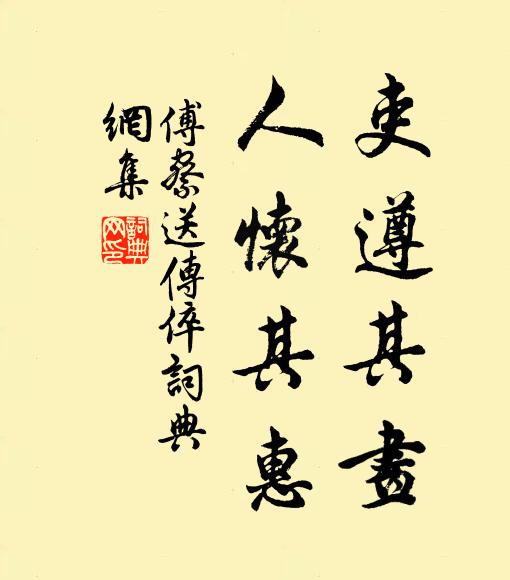 吏遵其畫
人懷其惠
傅察送傅倅詞典
網集
詞典
网印